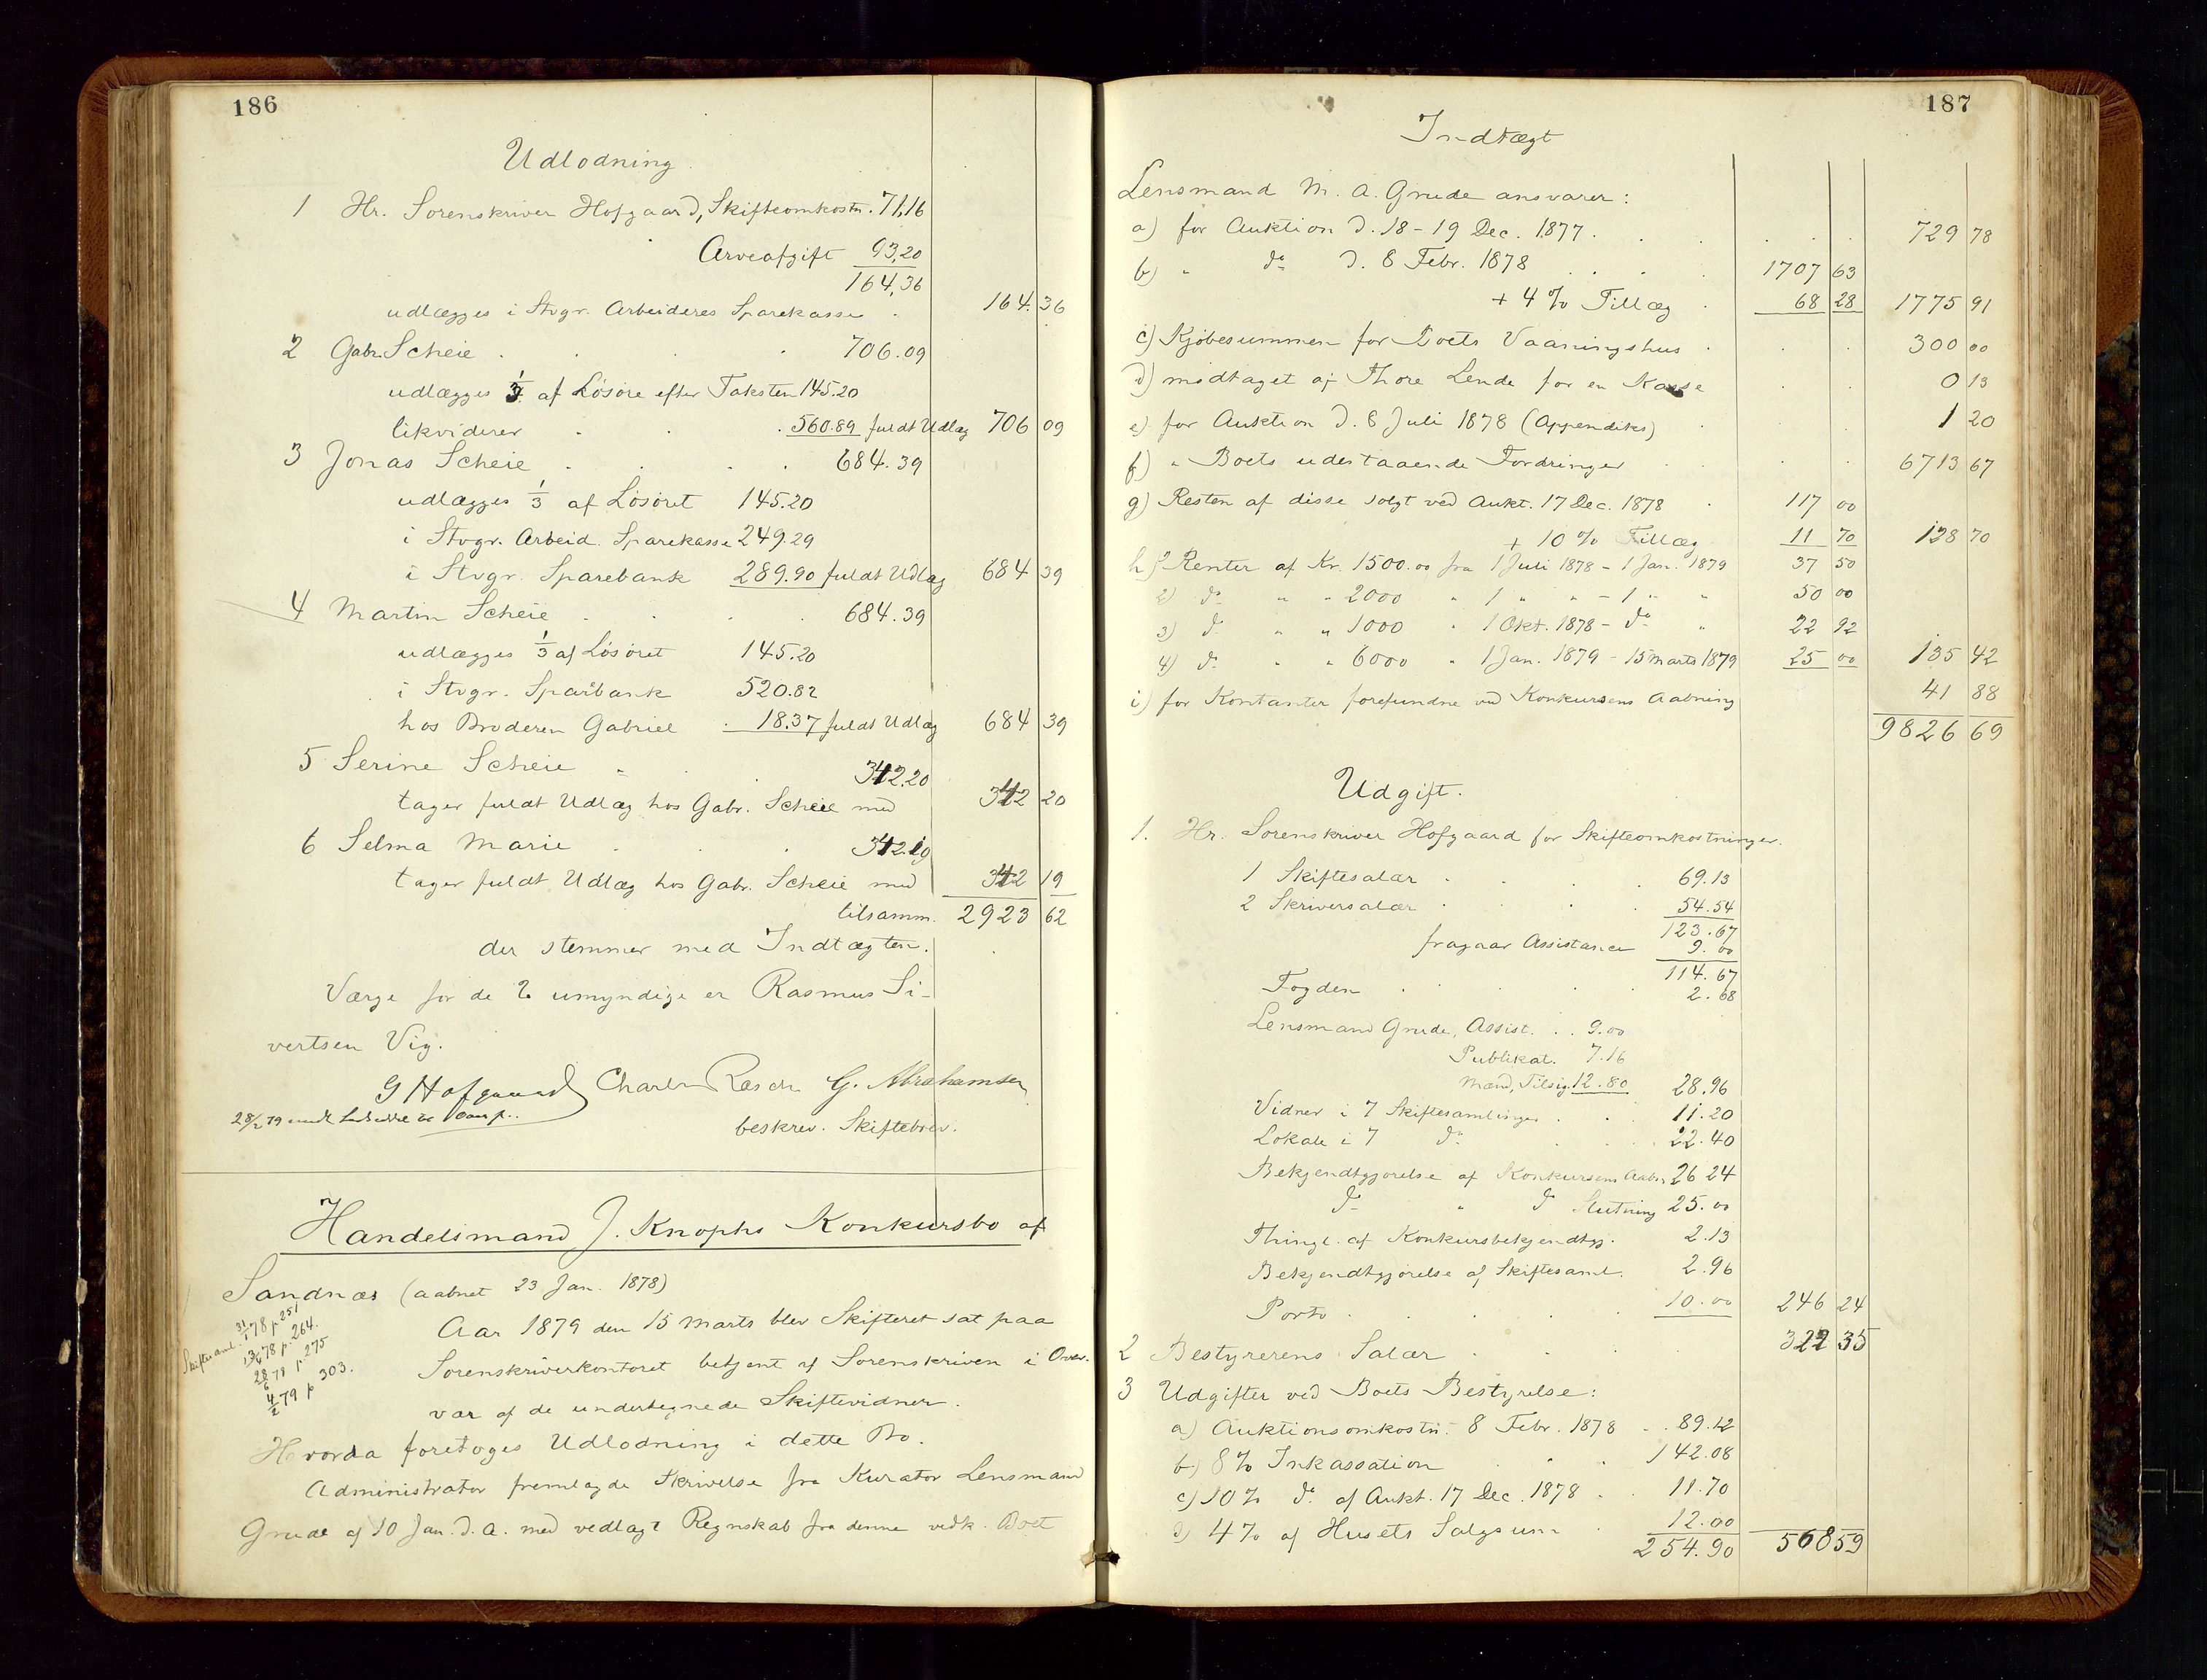 186
Udlodning.
1 Hr. Sorenskriver Hofgaard, Skifteomkostn. 71,16
Arveafgift 93,20
164,36
udlægges i Stvgr. Arbeideres Sparekasse . 164.36
2 Gabr. Scheie . . . . 706.09
udlægges 1/3 af Løsøre efter Taksten 145.20
likviderer . . . 560.89 fuldt Udlæg 706 09
3 Jonas Scheie . . . . 684.39
udlægges 1/3 af Løsøret 145.20
i Stvgr. Arbeid. Sparekasse 249.29
i Stvgr. Sparebank 289.90 fuldt Udlæg 684 39
4 Martin Scheie . . . . 684.39
udlægges 1/3 af Løsøret 145.20
i Stvgr. Sparbank 520.82
hos Broderen Gabriel . 18.37 fuldt Udlæg 684 39
5 Serine Scheie . . . 342.20
tager fuldt Udlæg hos Gabr. Scheie med 342 20
6 Selma Marie . . . 342.19
tager fuldt Udlæg hos Gabr. Scheie med 342 19
tilsamm. 2923 62
der stemmer med Indtægten.
Værge for de 2 umyndige er Rasmus Si-
vertsen Vig.
G Hofgaard Charles Rasch G. Abrahamsen
28/2 79
beskrev. Skiftebrev.
Handelsmand J. Knophs Konkursbo af
Sandnæs (aabnet 23 Jan. 1878)
Skiftesaml. 31/1 78 p 251
13/4 78 p. 264.
28/6 78 p. 275
4/2 79 p 303.
Aar 1879 den 15 Marts blev Skifteret sat paa
Sorenskriverkontoret betjent af Sorenskriven i Over-
vær af de undertegnede Skiftevidner.
Hvorda foretoges Udlodning i dette Bo.
Administrator fremlagde Skrivelse fra Kurator Lensmand
Grude af 10 Jan. d. A. med vedlagt Regnskab fra denne vedk. Boet
187
Indtægt
Lensmand M. A. Grude ansvarer:
a) for Auktion d. 18-19 Dec. 1877 . . . . . 729 78
b) " do d. 8 Febr. 1878 . . . . 1707 63
+ 4 % Tillæg . 68 28 1775 91
c) Kjøbesummen for Boets Vaaningshus . . . 300 00
d) modtaget af Thore Lende for en Kasse . . 0 13
e) for Auktion d. 8 Juli 1878 (Appendiks) . 1 20
f) " Boets udestaaende Fordringer . . . 6713 67
g) Resten af disse solgt ved Aukt. 17 Dec. 1878 . 117 00
+ 10 % Tillæg 11 70 128 70
h) 1) Renter af Kr. 1500.00 fra 1 Juli 1878 - 1 Jan. 1879 37 50
2) do " " 2000 " 1 " " - 1 " " 50 00
3) do " " 1000 " 1 Okt. 1878 - do " 22 92
4) do " " 6000 " 1 Jan. 1879 - 15 Marts 1879 25 00 135 42
i) for Kontanter forefundne ved Konkursens Aabning 41 88
9826 69
Udgift.
1. Hr. Sorenskriver Hofgaard for Skifteomkostninger.
1 Skiftesalær . . . . 69.13
2 Skriversalær . . . . 54.54
123.67
fragaar Assistance 9.00
114.67
Fogden . . . . 2.68
Lensmand Grude, Assist. . . 9.00
Publikat. 7.16
Mænd, Tilsig. 12.80 28.96
Vidner i 7 Skiftesamlinger . . . 11.20
Lokale i 7 do . . . 22.40
Bekjendtgjørelse af Konkursens Aabn. 26 24
do " do Slutning 25.00
Thingl. af Konkursbekjendtgj. 2.13
Bekjendtgjørelse af Skiftesaml. 2.96
Porto . . . . 10.00 246 24
2 Bestyrerens Salær . . . 322 35
3 Udgifter ved Boets Bestyrelse:
a) Auktionsomkostn. 8 Febr. 1878 . . 89.12
b) 8 % Inkassation . . . 142.08
c) 10 % do. af Aukt. 17 Dec. 1878 . . 11.70
d) 4 % af Husets Salgsum . 12.00
254.90 568 59